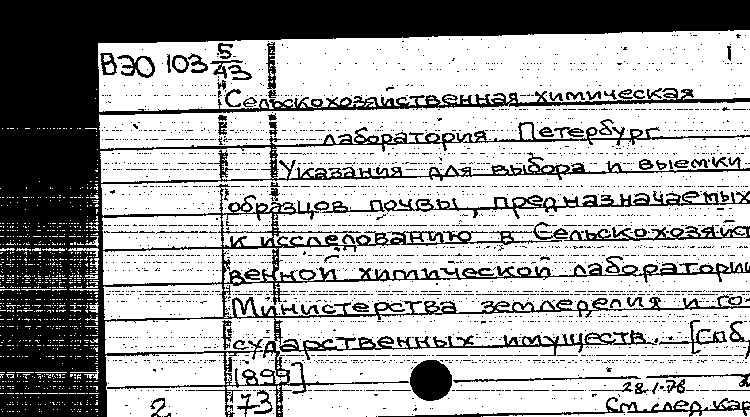 ВЭО 103 5/43
1
Сельскохозяйственная химическая
лаборатория. Петербург
Указания для выбора и выемки
образцов почвы, предназначаемых
к исследованию в Сельскохозяйст
венной химической лаборатории
Министерства земледелия и го-
сударственных имуществ... [Спб,
1899]
28.1.76
2 73 См. след. кар